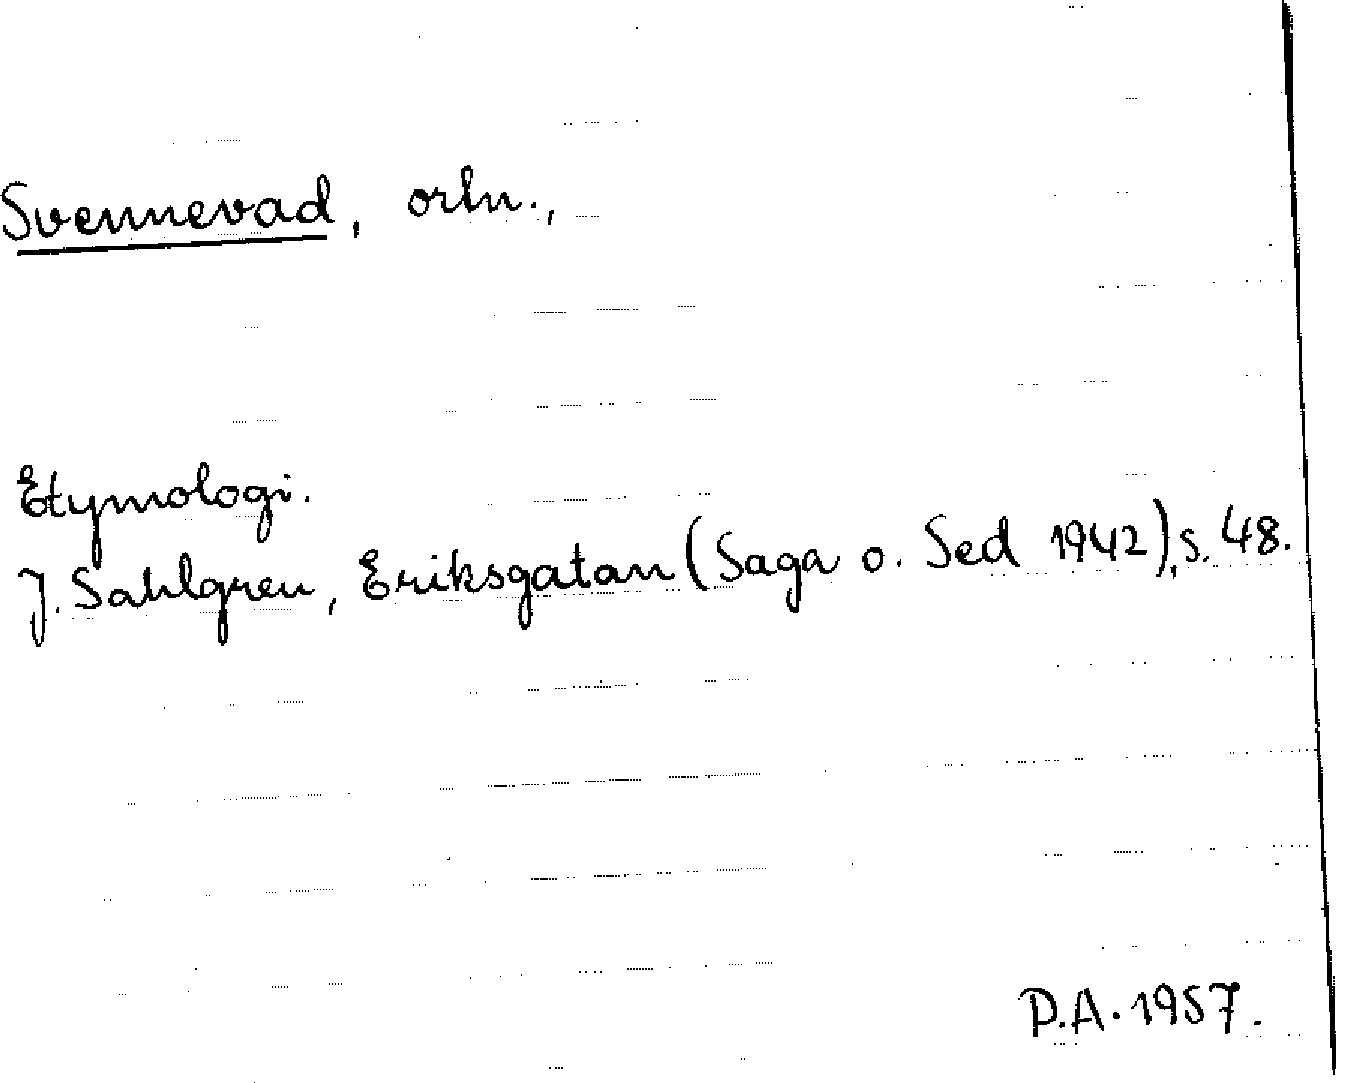 Svennevad, ortn.,
Etymologi.
J. Sahlgren, Eriksgatan (Saga o. Sed 1942), s. 48.
D.A. 1957.